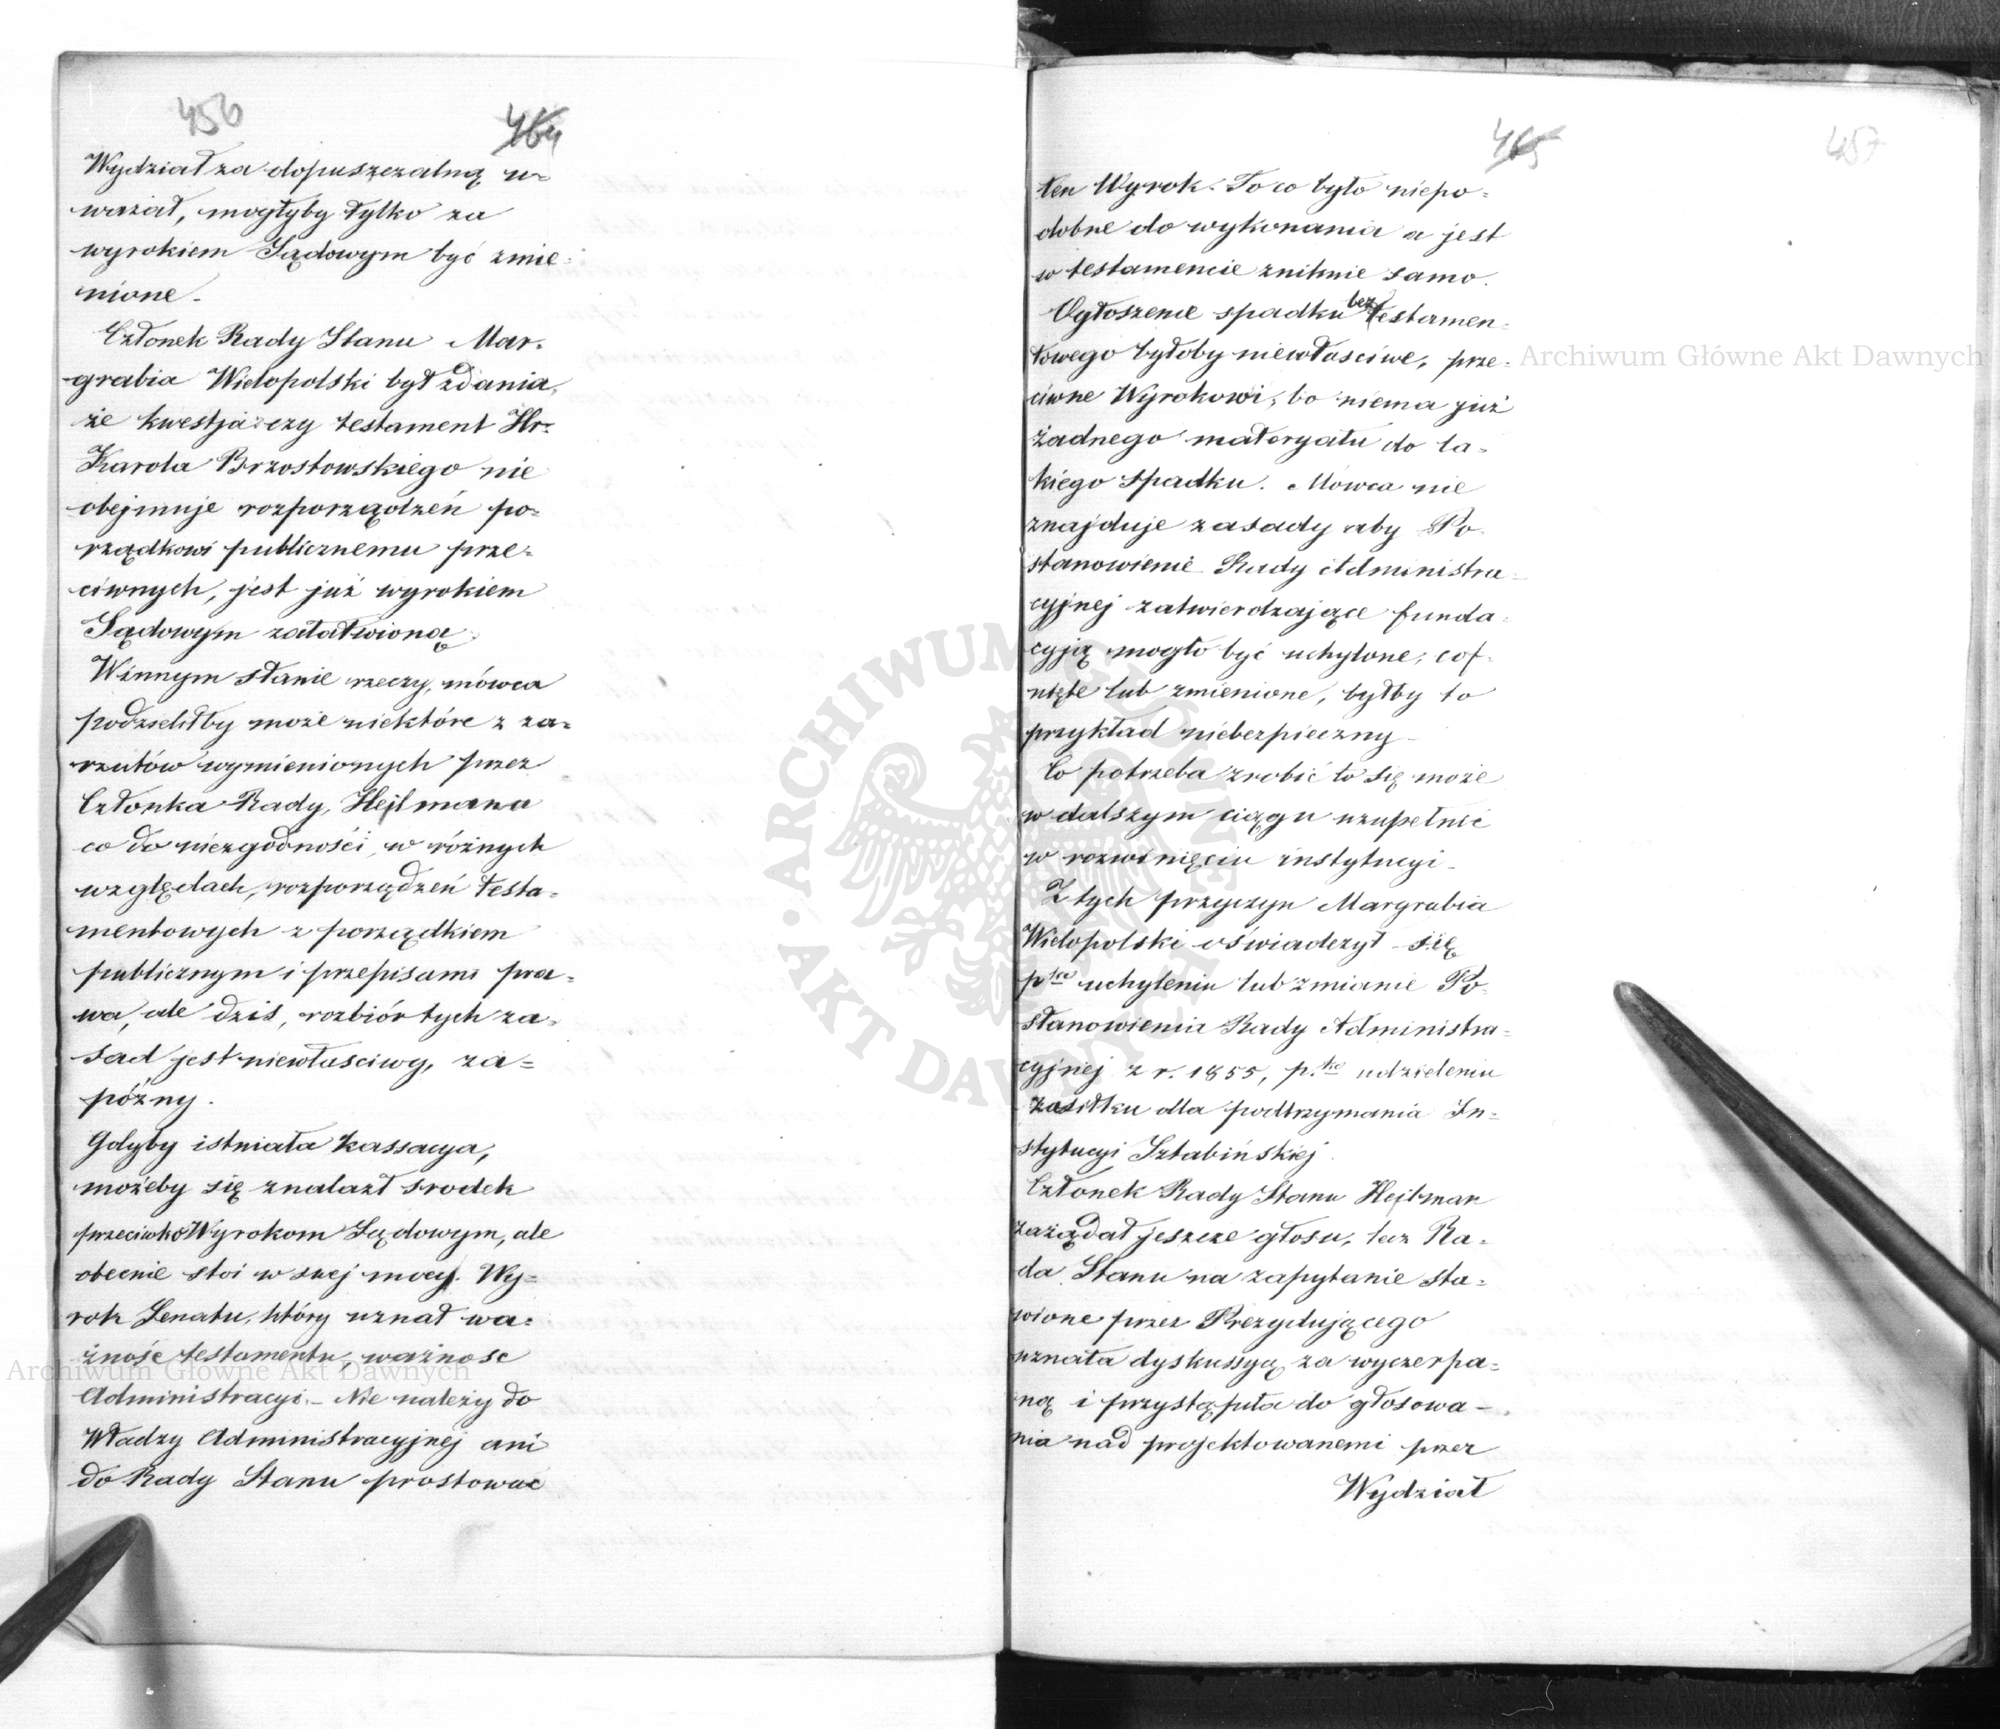 456
464
Wydział za dopuszczalną u=
ważał, mogłyby tylko za
wyrokiem Sądowym być zmie=
nione.
Członek Rady Stanu Mar=
grabia Wielopolski był zdania,
że kwestja czy testament Hr.
Karola Brzostowskiego nie
obejmuje rozporządzeń po=
rządkowi publicznemu prze=
ciwnych, jest już wyrokiem
Sądowym załatwioną.
W innym stanie rzeczy, mówca
podzieliłby może niektóre z za=
rzutów wymienionych przez
Członka Rady, Hejlmana
co do niezgodności, w różnych
względach, rozporządzeń testa=
mentowych z porządkiem
publicznym i przepisami pra=
wa, ale dziś, rozbiór tych za=
sad jest niewłaściwy, za=
późny.
Gdyby istniała kassacya,
możeby się znalazł srodek
przeciwko Wyrokom Sądowym, ale
obecnie stoi w swej mocy Wy=
rok Senatu, który uznał wa=
żność testamentu, ważnosc
Administracyi. Nie należy do
Władzy Administracyjnej ani
do Rady Stanu prostowac
465
457
ten Wyrok. To co było niepo=
dobne do wykonania a jest
w testamencie zniknie samo.
Ogłoszenie spadku bez testamen=
towego byłoby niewłaściwe, prze=
ciwne Wyrokowi, bo niema już
żadnego materyału do ta=
kiego spadku. Mówca nie
znajduje zasady aby Po=
stanowienie Rady Administra=
cyjnej zatwierdzające funda=
cyją mogło być uchylone, cof=
nięte lub zmienione, byłby to
przykład niebezpieczny.
Co potrzeba zrobić to się może
w dalszym ciągu uzupełnić
w rozwinięciu instytucyi.
Z tych przyczyn Margrabia
Wielopolski oświadczył się
p.ko uchyleniu lub zmianie Po=
stanowienia Rady Administra=
cyjnej z r. 1855, p.ko udzieleniu
zasiłku dla podtrzymania In=
stytucyi Sztabińskiej.
Członek Rady Stanu Hejlman
zażądał jeszcze głosu, lecz Ra=
da Stanu na zapytanie sta=
wione przez Prezydującego
uznała dyskussyą za wyczerpa=
ną i przystąpiła do głosowa=
nia nad projektowanemi przez
Wydział
Archiwum Główne Akt Dawnych
Archiwum Główne Akt Dawnych
ARCHIWUM GŁÓWNE · AKT DAWNYCH ·